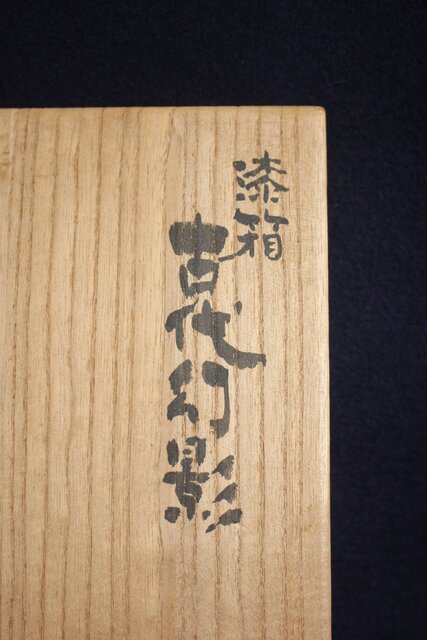 漆箱
古代幻影